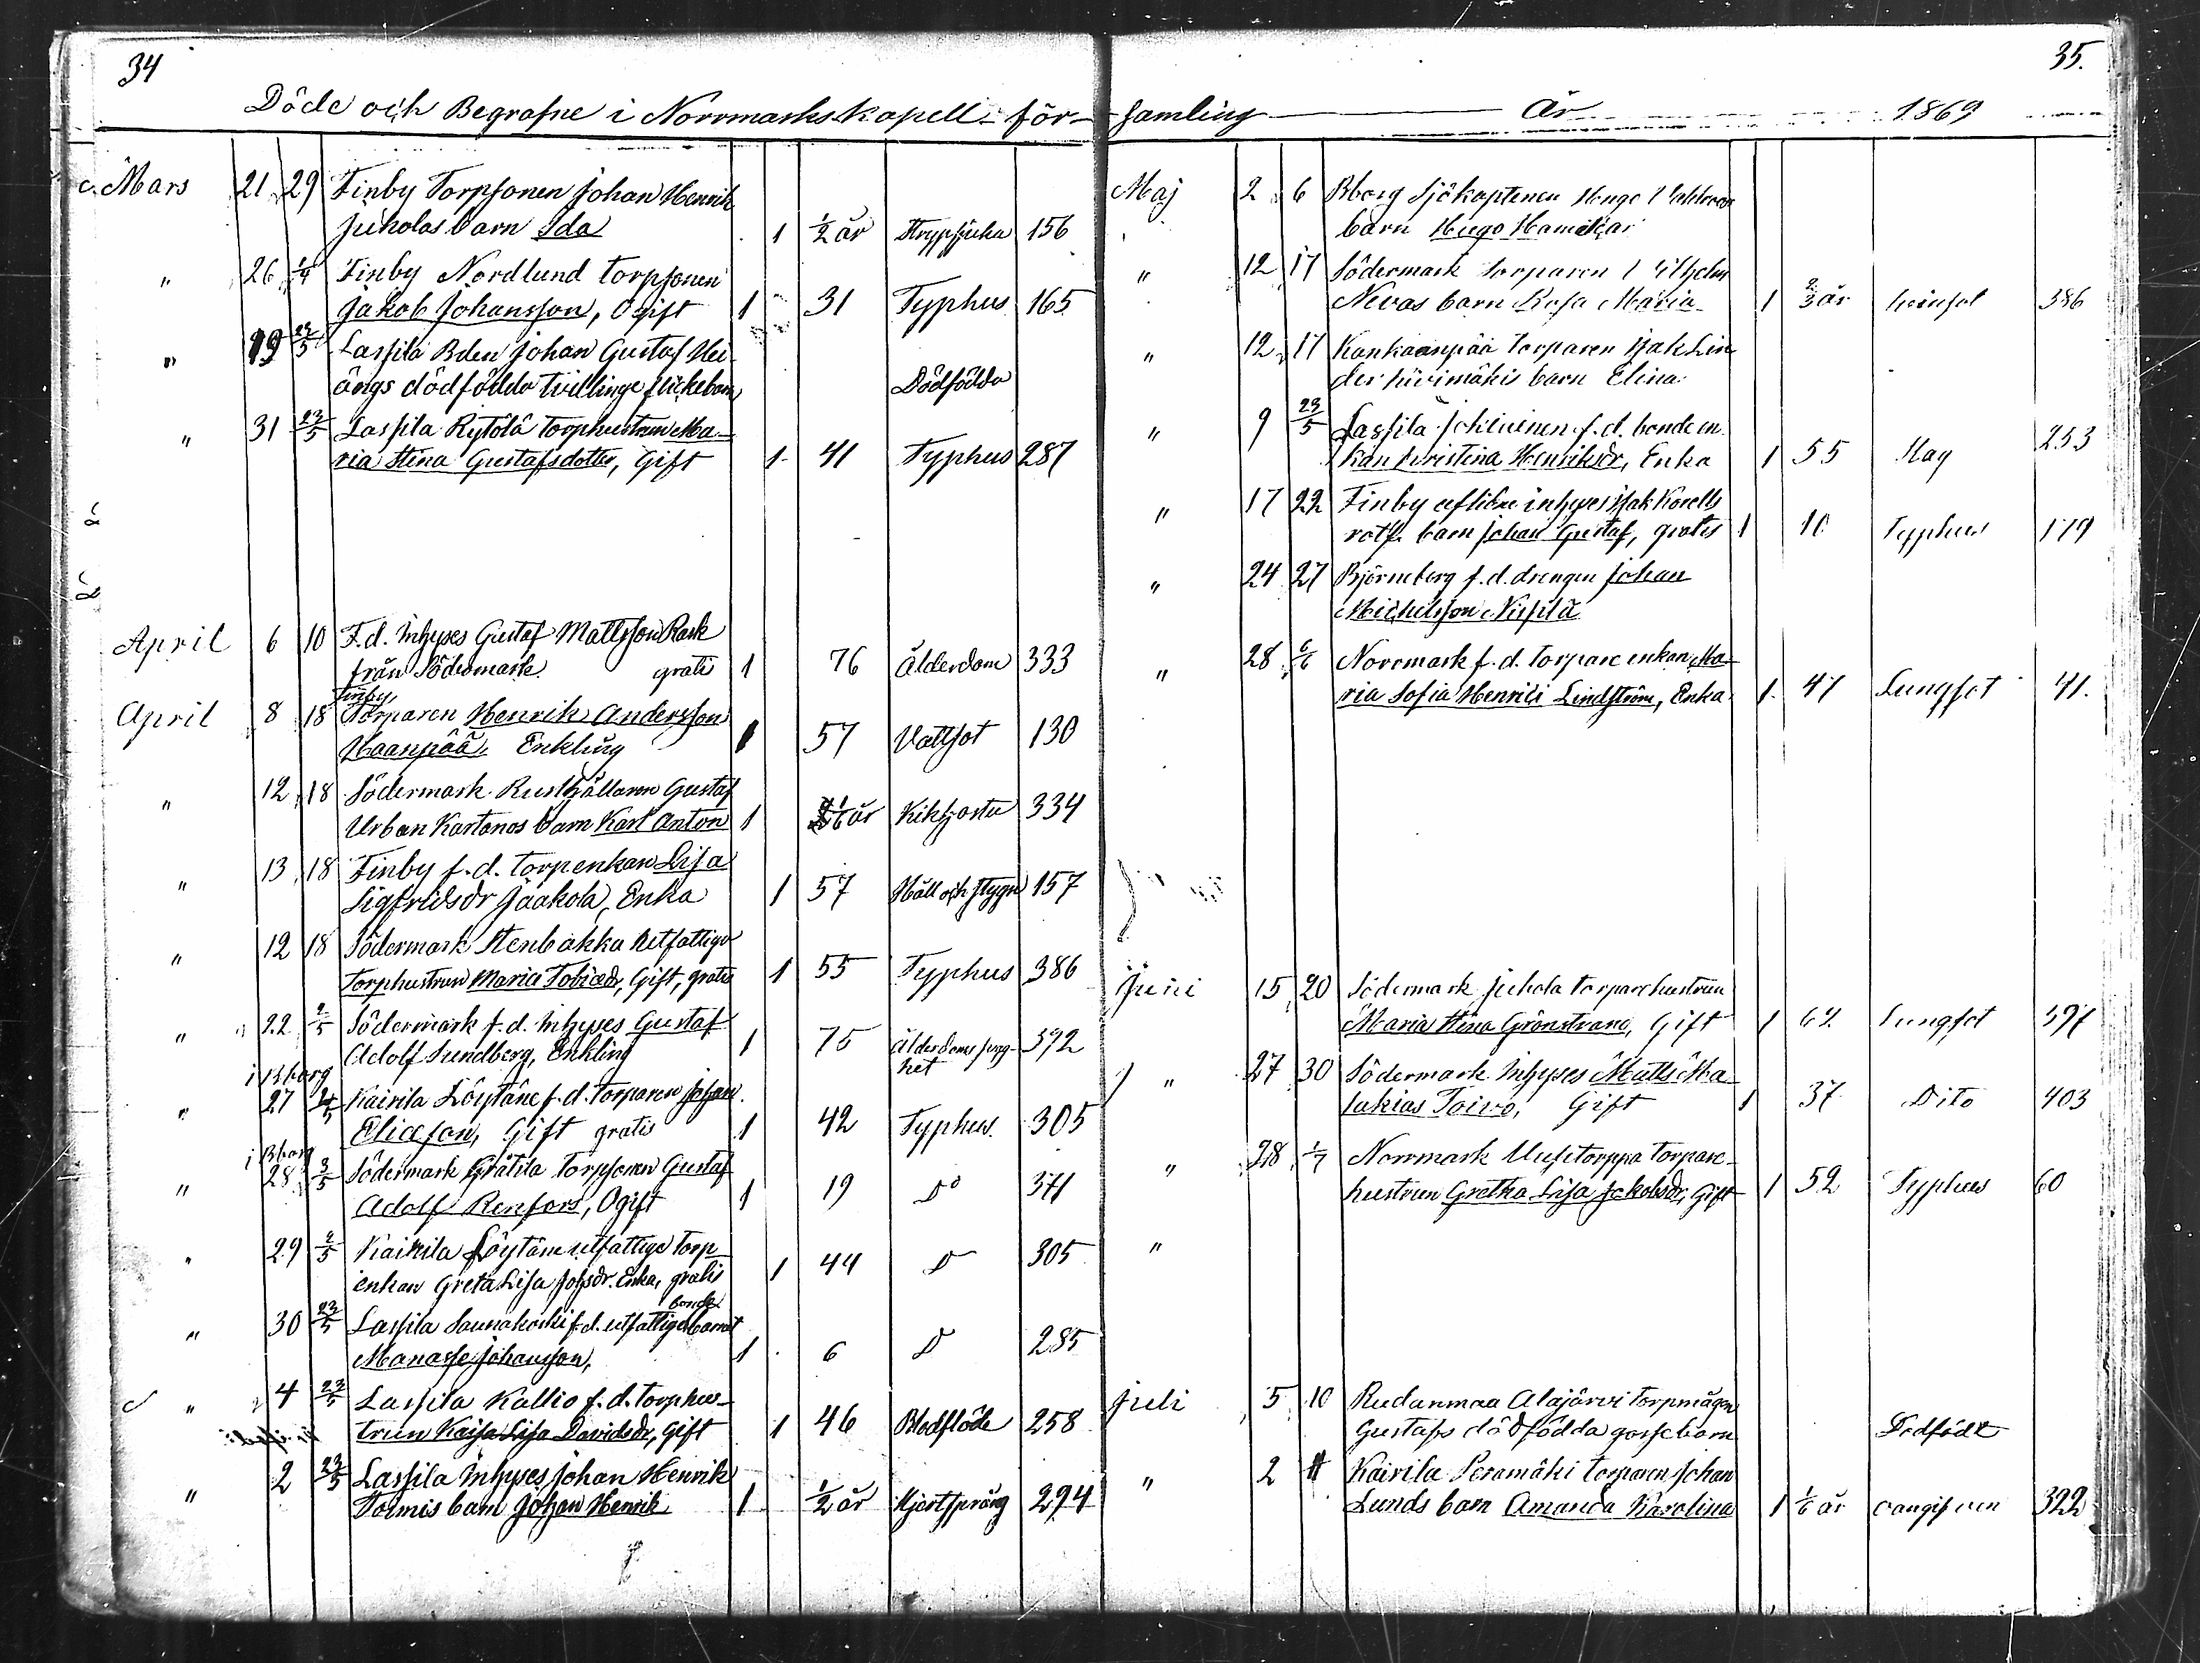 34
35.
Döde och Begrafne i Norrmarks kapell-för-samling År 1869
Mars 21 29 Finby Torpsonen Johan Henrik
Juholas barn Ida 1 1/2 år Strypsjuka 156
" 26 1/4 Finby Nordlund torpsonen
Jakob Johansson, Ogift 1 31 Typhus 165
" 29 23/5 Lassila Bden Johan Gustaf Hei-
ängs dödfödda tvillinge flickebarn Dödfödda
" 31 23/5 Lassila Rytölä torphustrun Ma-
ria Stina Gustafsdotter, Gift 1 41 Typhus 287
April 6 10 F.d. Inhyses Gustaf Mattsson Rask
från Södermark. gratis 1 76 Ålderdom 333
Finby
April 8 18 Torparen Henrik Andersson
Haanpää. Enkling 1 57 Vattsot 130
" 12 18 Södermark Rusthållaren Gustaf
Urban Kartanos barn Karl Anton 1 1/6 år Kikhosta 334
" 13 18 Finby f.d. torpenkan Lisa
Sigfridsdr Jaakola, Enka 1 57 Håll och Stygn 157
" 12 18 Södermark Stenbakka utfattige
Torphustrun Maria Tobiasdr, Gift, gratis 1 55 Typhus 386
" 22 2/5 Södermark f.d. Inhyses Gustaf
Adolf Sundberg, Enkling 1 75 Ålderdoms svag-
het 392
i Bborg
" 27 Kairila Löytäne f.d. torparen Johan
Eliasson, Gift gratis 1 42 Typhus 305
i Bborg
" 28 3/5 Södermark Grätila Torpsonen Gustaf
Adolf Renfors, Ogift 1 19 Do 371
" 29 2/5 Kairila Löytäne utfattige torp-
enkan Greta Lisa Johsdr. Enka, gratis 1 44 D 305
bonde
" 30 23/5 Lassila Saunakoski f.d. utfattige barnet
Manasse Johansson, 1 6 D 285
" 4 23/5 Lassila Kallio f.d. torphus-
trun Kaisa Lisa Davidsdr, Gift 1 46 Blodflöde 258
" 2 23/5 Lassila Inhyses Johan Henrik
Tormis barn Johan Henrik 1 1/2 år Hjertsprång 294
Maj 2 6 Bborg Sjökaptenen Hugo
barn Hugo Hamilkar
" 12 17 Södermark Torparen Vilhelm
Nevas barn Rosa Maria 1 2/3 år 386
" 12 17 Kankaanpää torparen Isak Lin-
der Hivimäkis barn Elina
" 9 23/5 Lassila f.d. bonde en-
kan Kristina Henriksdr, Enka 1 55 Slag 253
" 17 22 Finby aflidne inhyses Isak Korells
rotf. barn Johan Gustaf, gratis 1 10 Typhus 179
" 24 27 Björneborg f.d. drengen Johan
Michelsson Nissilä
" 28 6/6 Norrmark f.d. torpare enkan Ma-
ria Sofia Henrici Lindström, Enka 1 47 Lungsot 41.
Juni 15 20 Södermark Juhola torparehustrun
Maria Stina Grönstrand, Gift 1 62 Lungsot 397
" 27 30 Södermark Inhyses Matts Ma-
lakias Toivo, Gift 1 37 Dito 403
" 28 1/7 Norrmark Uusitorppa torpare-
hustrun Gretha Lisa Jakobsdr, Gift 1 52 Typhus 60
"
Juli 5 10 Rudanmaa Alajärvi torpmågen
Gustafs dödfödda gossebarn Dödfödt
" 2 11 Kairila Peramäki torparen Johan
Lunds barn Amanda Karolina 1 1/6 år oangifven 322